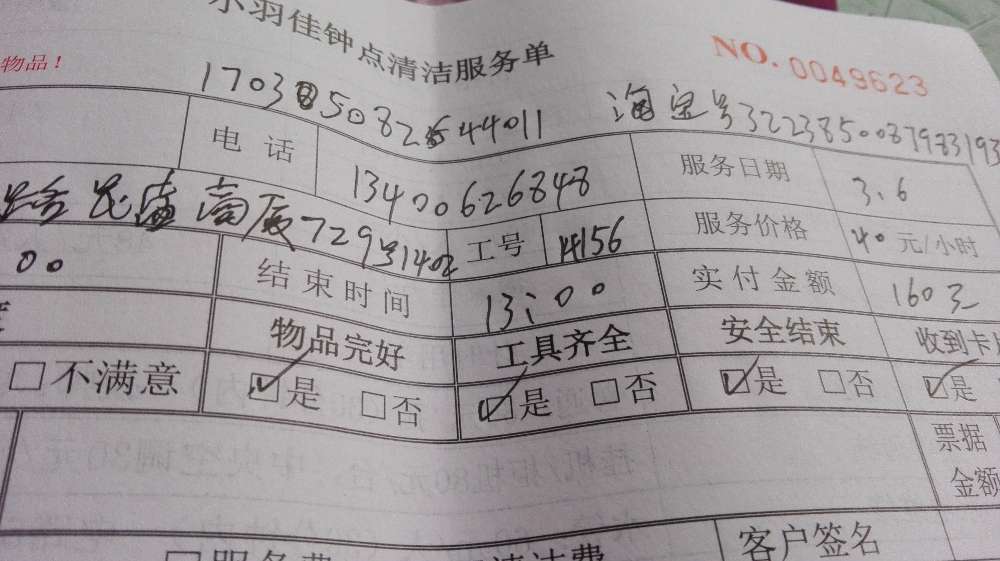 小羽佳钟点清洁服务单
NO. 0049623
物品！
170385082644011 淘宝号3223850087983193
电话 13400626848 服务日期 3.6
729号1402 工号 14156 服务价格 40元/小时
00 结束时间 13:00 实付金额 160元
物品完好 工具齐全 安全结束 收到卡
□不满意 ☑是 □否 ☑是 □否 ☑是 □否 ☑是
票据
金额
客户签名